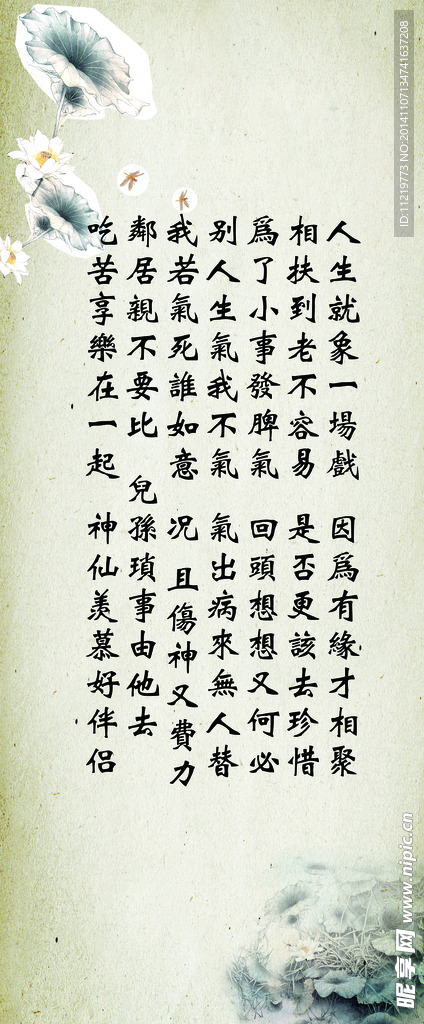 人生就象一場戲 因爲有緣才相聚
相扶到老不容易 是否更該去珍惜
爲了小事發脾氣 回頭想想又何必
别人生氣我不氣 氣出病來無人替
我若氣死誰如意 况且傷神又費力
鄰居親不要比 兒孫瑣事由他去
吃苦享樂在一起 神仙羨慕好伴侣
ID:11219773 NO:20141107134741637208
昵享网 www.nipic.cn